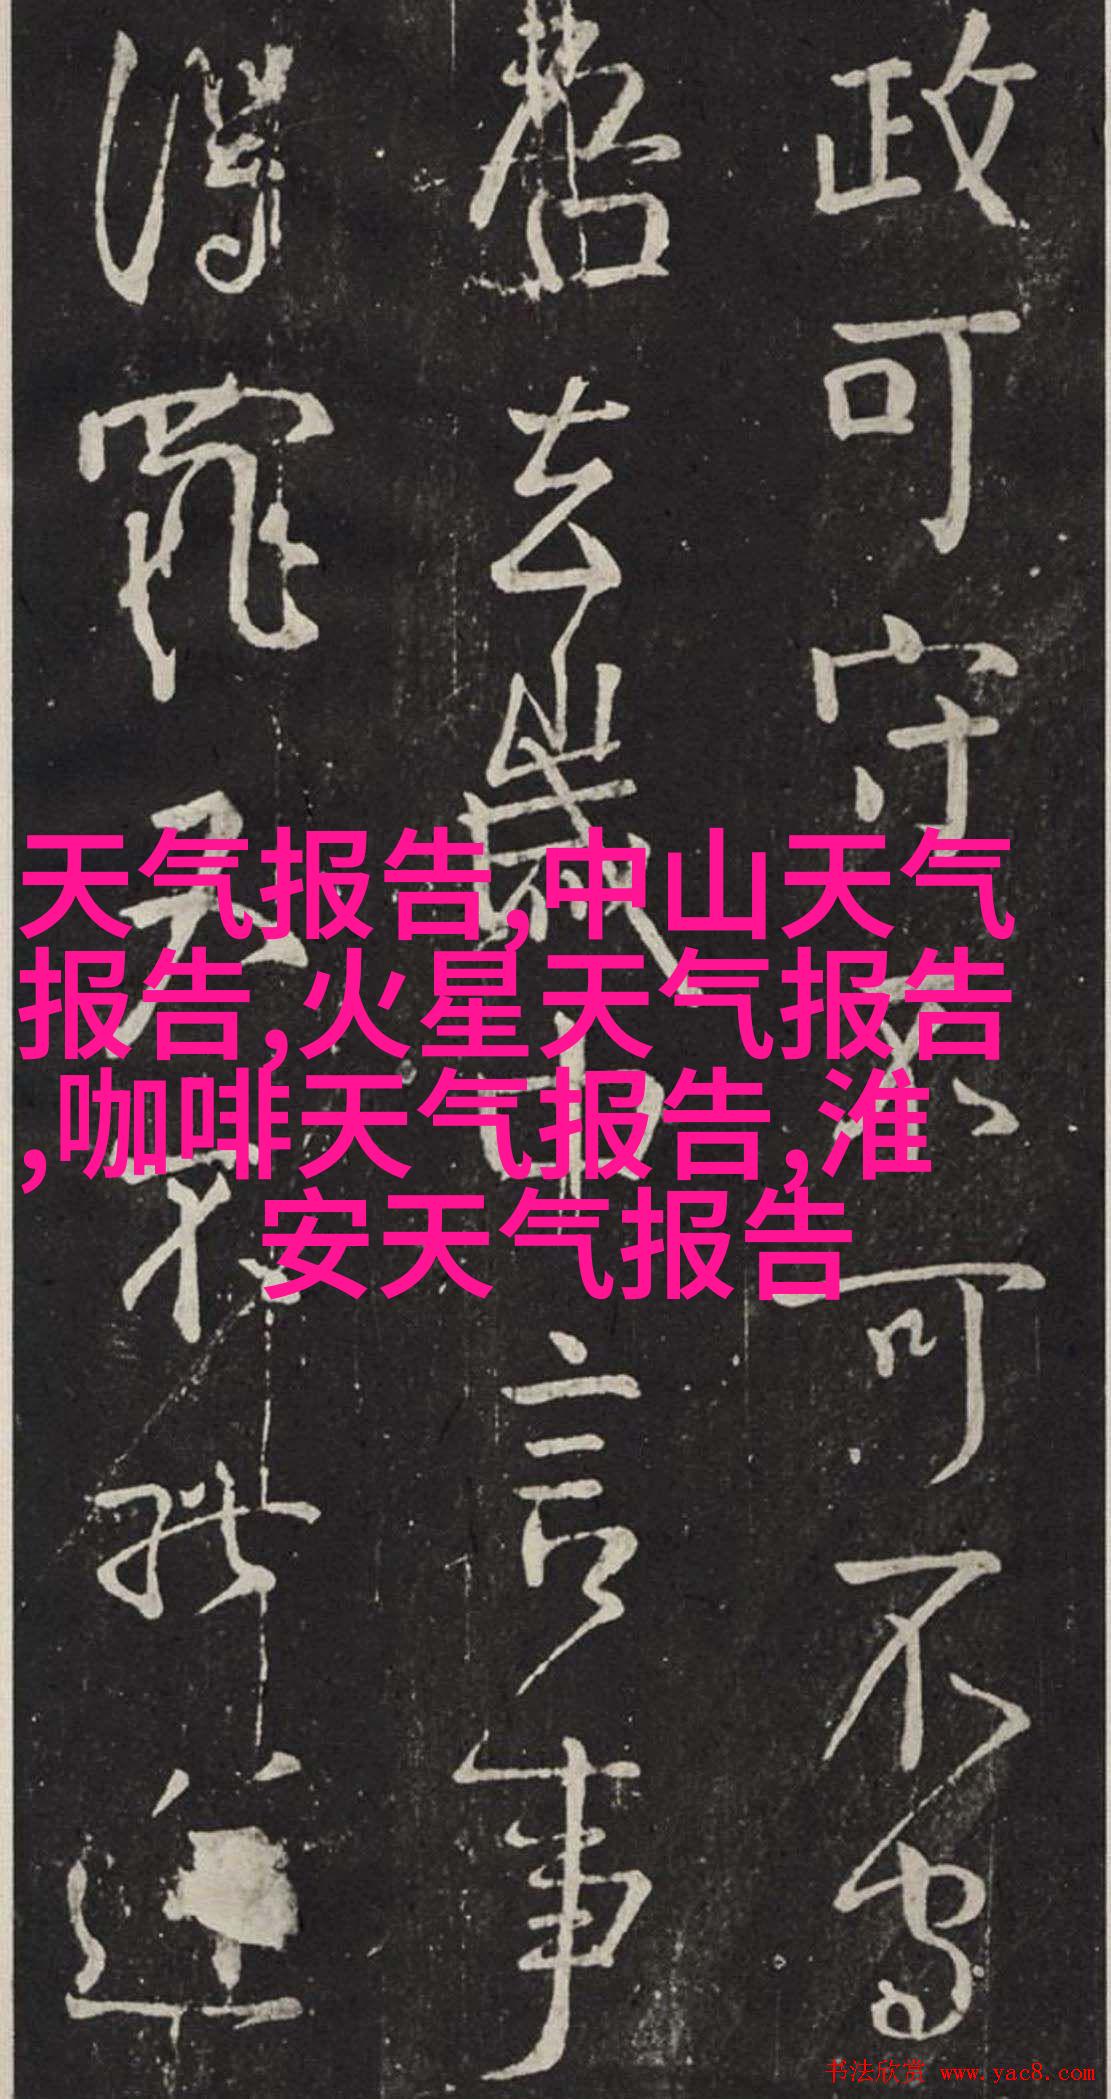 政可守不可不守
吾去歲中言事
得罪又不能逆
天气报告,中山天气
报告,火星天气报告
,咖啡天气报告,淮
安天气报告
书法欣赏 www.yac8.com